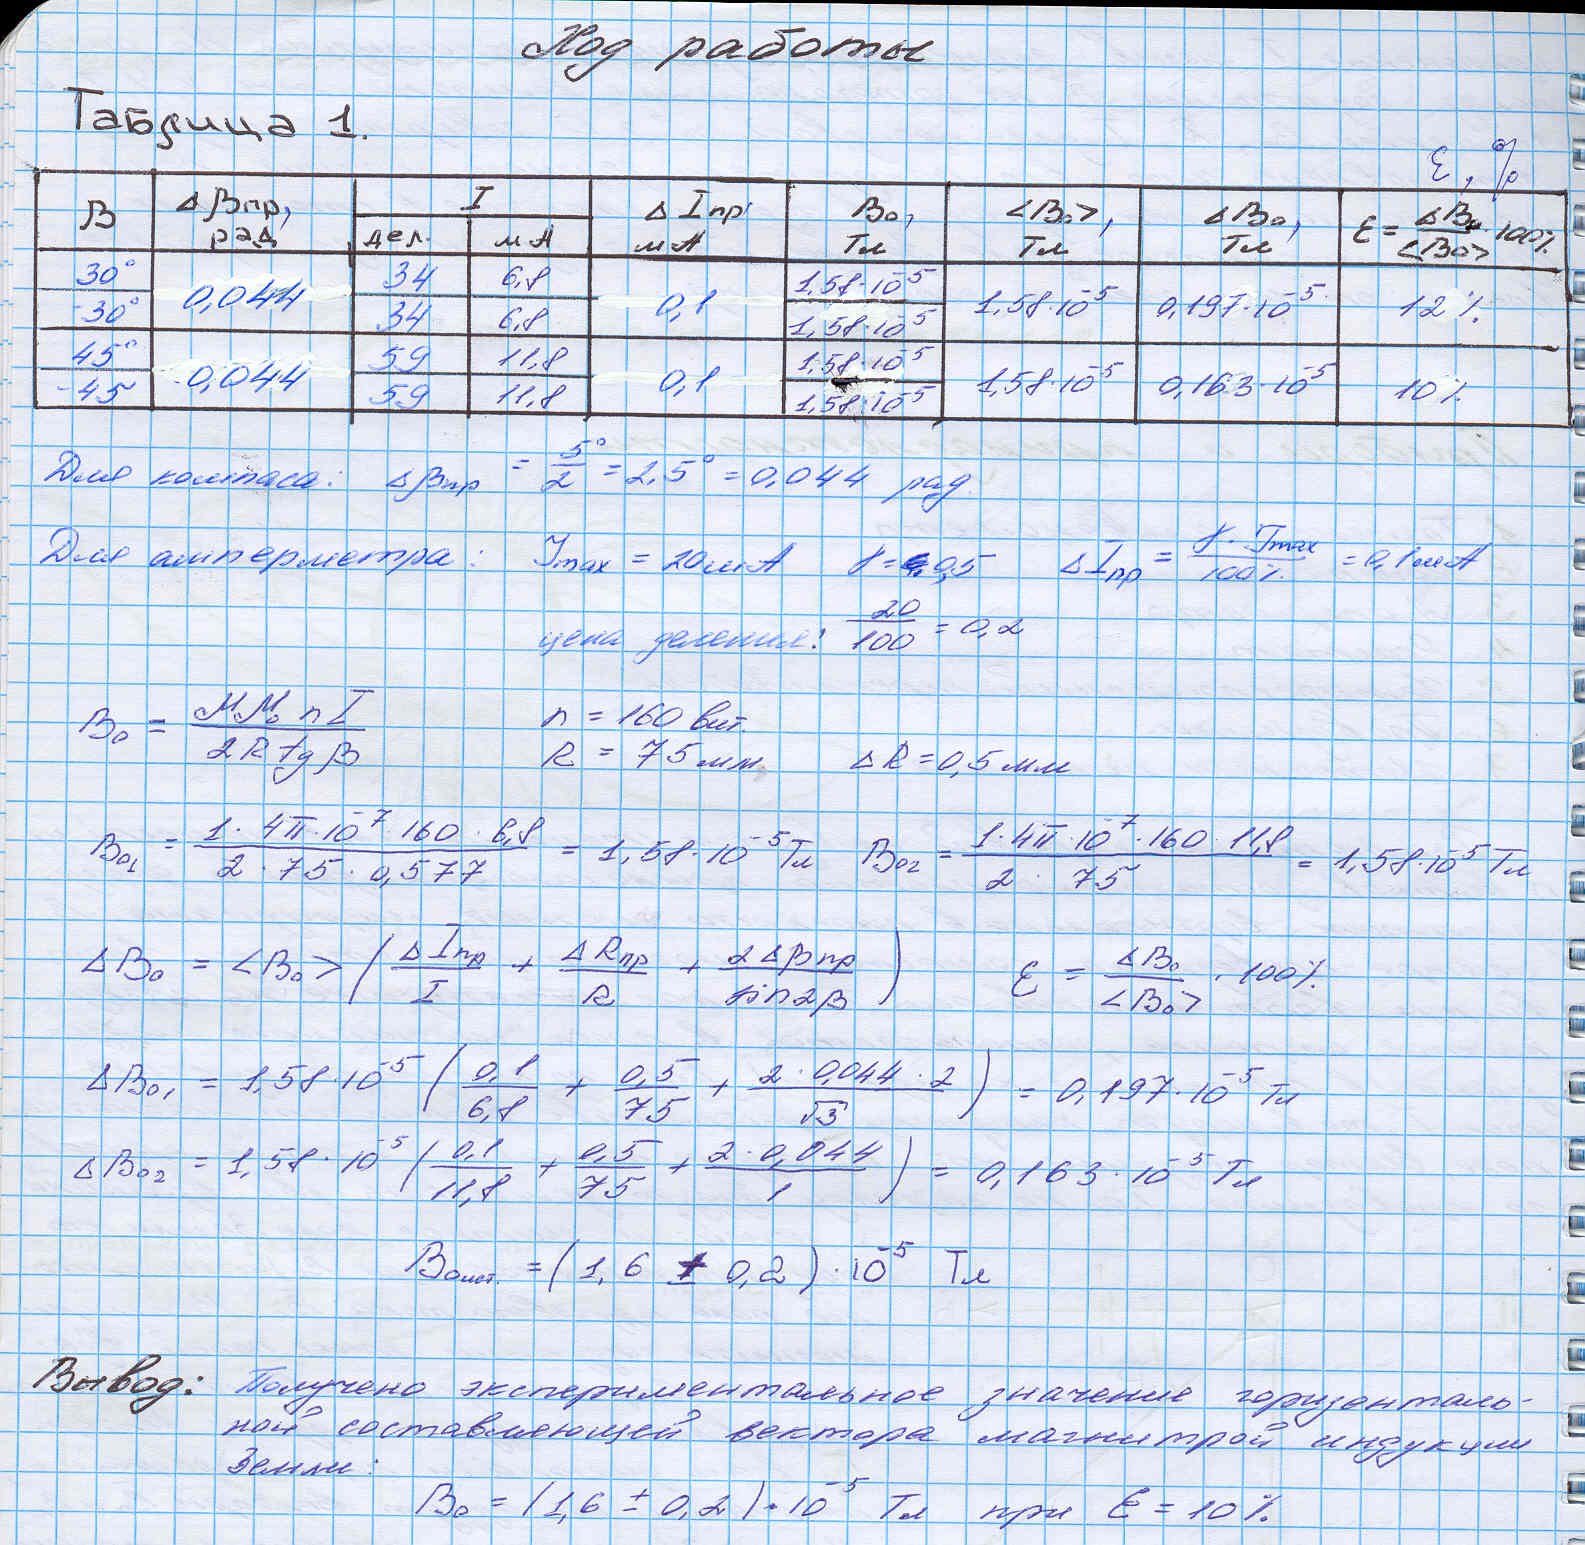 Ход работы
Таблица 1.
ε, %
β | Δβпр, рад | I | ΔIпр, мА | B₀, Тл | <B₀>, Тл | ΔB₀, Тл | ε = ΔB₀/<B₀> · 100%
дел. | мА
30° | 0,044 | 34 | 6,8 | 0,1 | 1,58·10⁻⁵ | 1,58·10⁻⁵ | 0,197·10⁻⁵ | 12%
-30° | 34 | 6,8 | 1,58·10⁻⁵
45° | 0,044 | 59 | 11,8 | 0,1 | 1,58·10⁻⁵ | 1,58·10⁻⁵ | 0,163·10⁻⁵ | 10%
-45 | 59 | 11,8 | 1,58·10⁻⁵
Для компаса: Δβпр = 5°/2 = 2,5° = 0,044 рад.
Для амперметра: Imax = 20мА γ = 0,5 ΔIпр = γ·Imax/100% = 0,1мА
цена деления: 20/100 = 0,2
B₀ = μμ₀ n I / 2R tg β n = 160 вит.
R = 75мм. ΔR = 0,5мм
B₀₁ = 1·4π·10⁻⁷·160·6,8 / 2·75·0,577 = 1,58·10⁻⁵ Тл B₀₂ = 1·4π·10⁻⁷·160·11,8 / 2·75 = 1,58·10⁻⁵ Тл
ΔB₀ = <B₀> (ΔIпр/I + ΔRпр/R + 2Δβпр/sin2β) ε = ΔB₀/<B₀> · 100%
ΔB₀₁ = 1,58·10⁻⁵ (0,1/6,8 + 0,5/75 + 2·0,044·2/√3) = 0,197·10⁻⁵ Тл
ΔB₀₂ = 1,58·10⁻⁵ (0,1/11,8 + 0,5/75 + 2·0,044/1) = 0,163·10⁻⁵ Тл
B₀ист. = (1,6 ± 0,2)·10⁻⁵ Тл
Вывод: Получено экспериментальное значение горизонталь-
ной составляющей вектора магнитрой индукции
Земли:
B₀ = (1,6 ± 0,2)·10⁻⁵ Тл при ε = 10%.